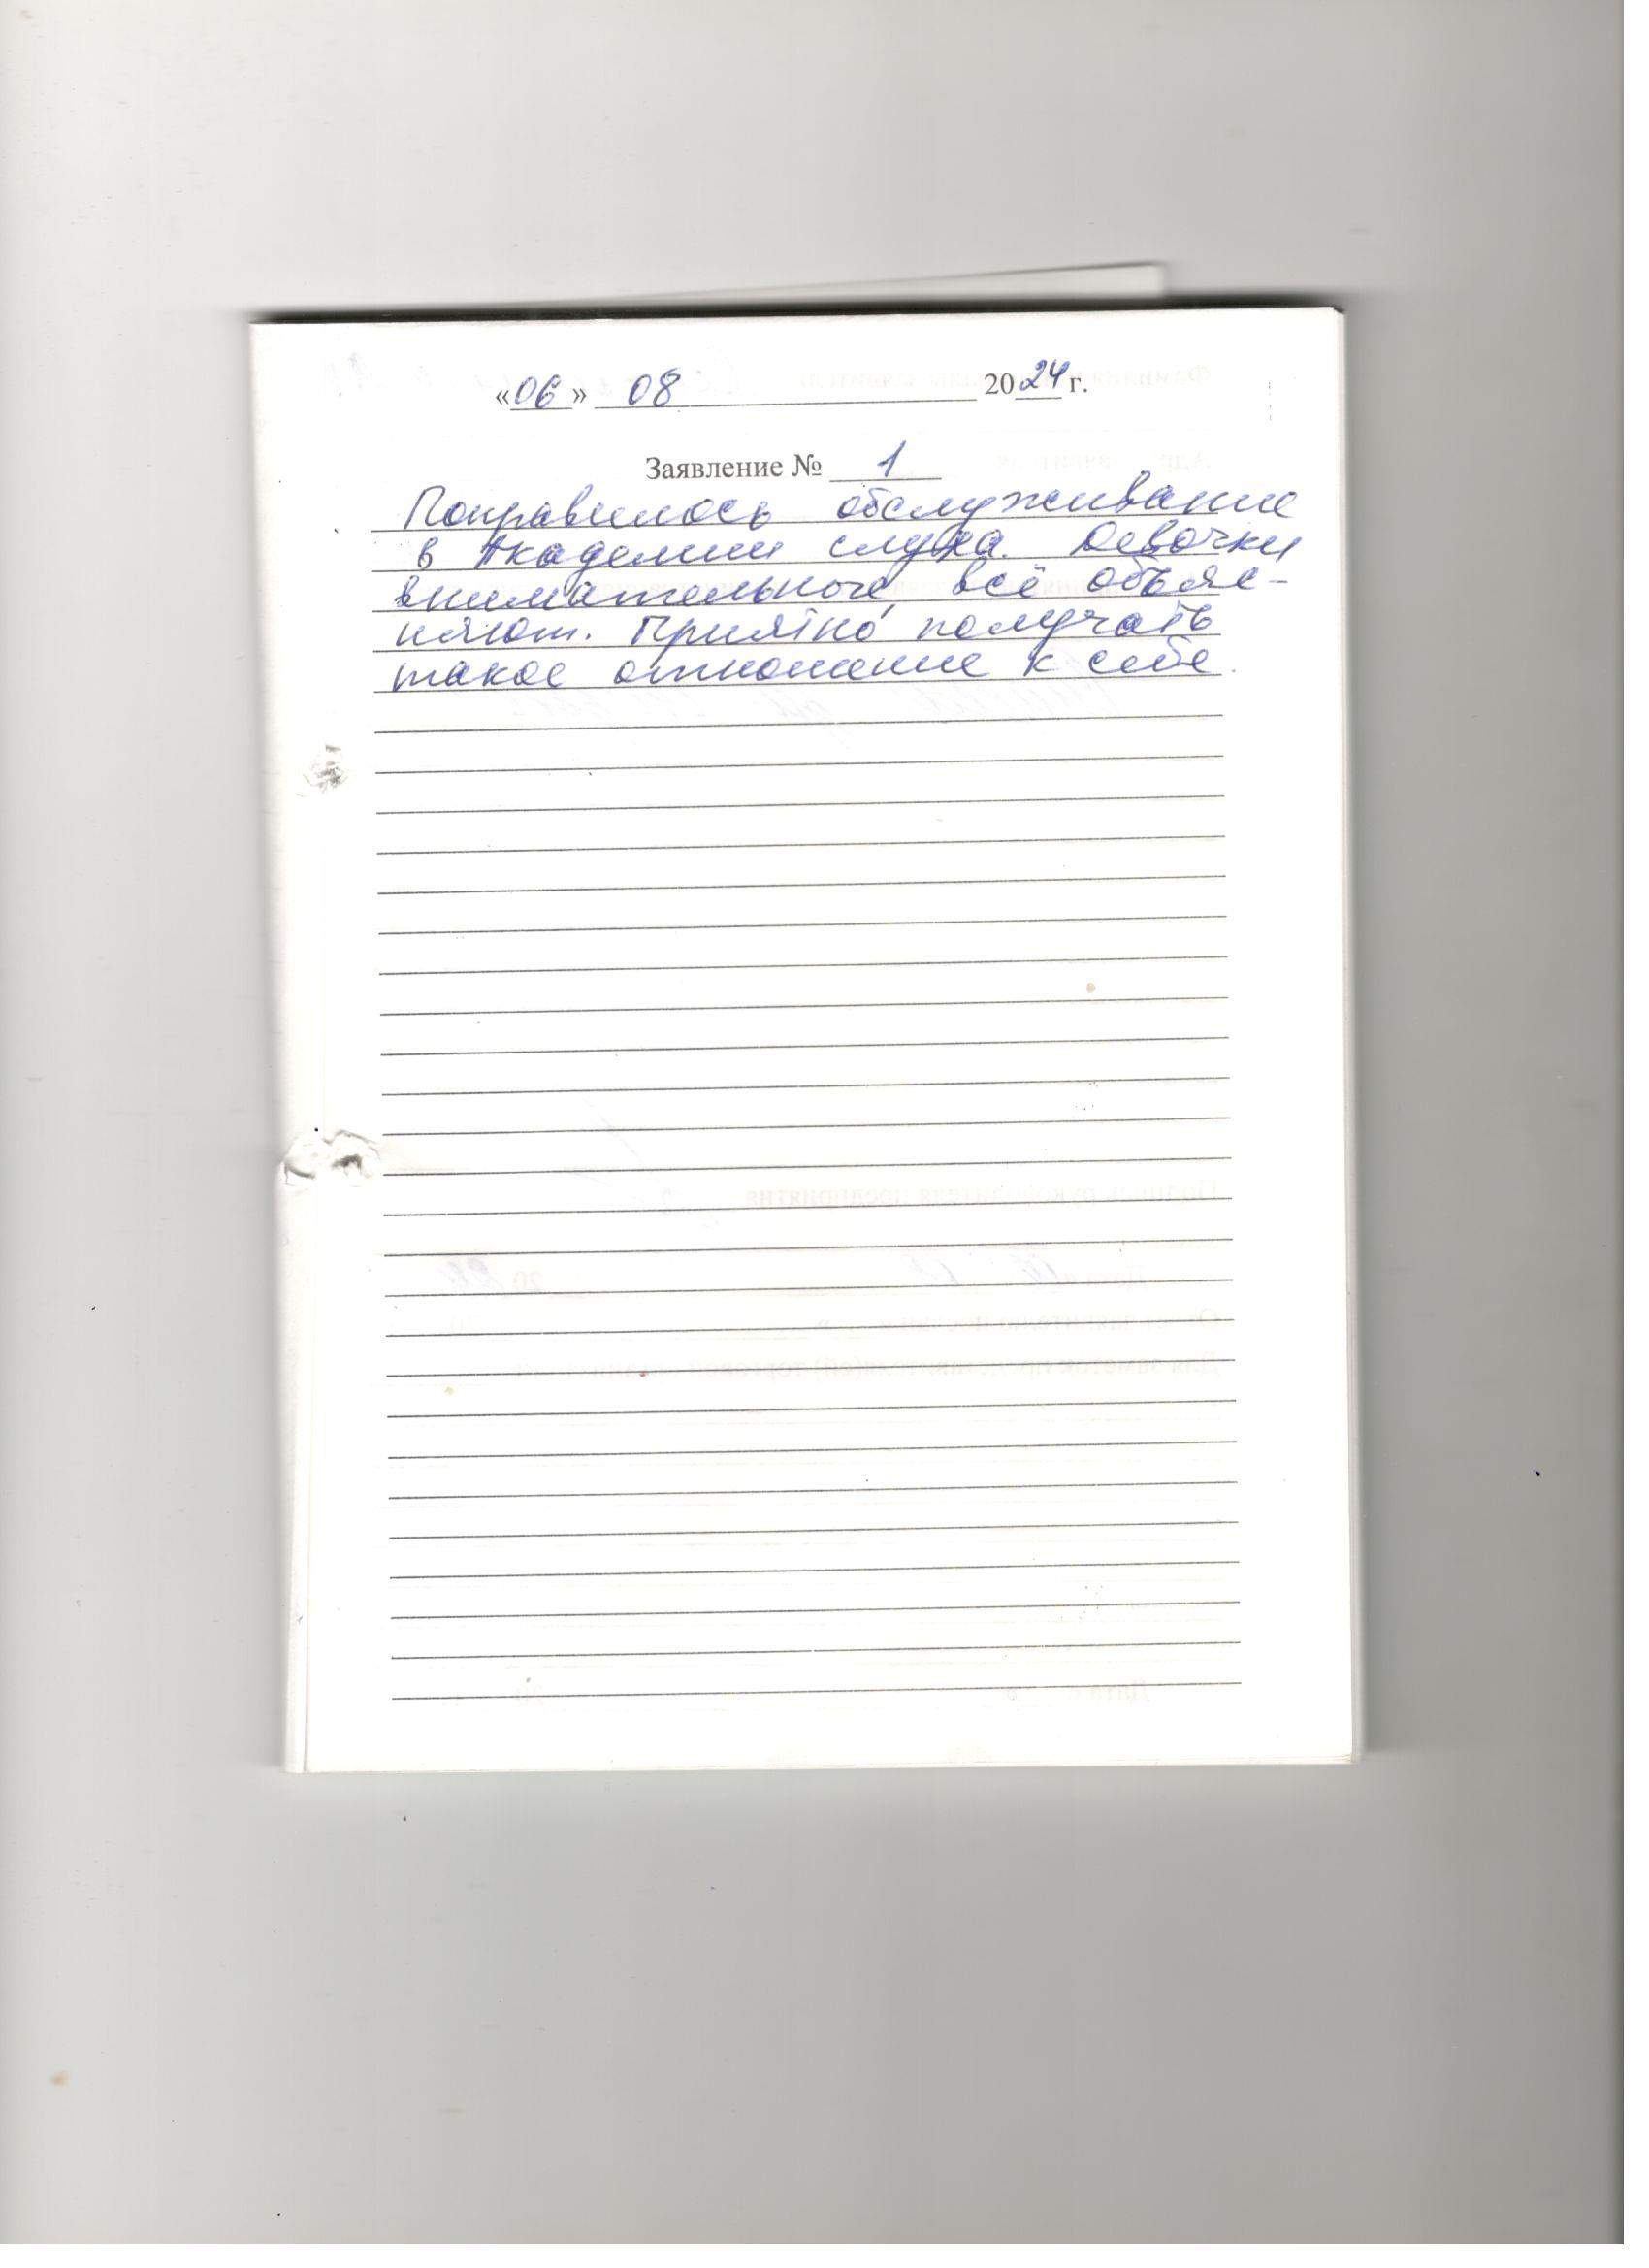 «06» 08 2024 г.
Заявление № 1
Понравилось обслуживание
в Академии слуха. Девочки
внимательные, всё объяс-
няют. Приятно получать
такое отношение к себе.